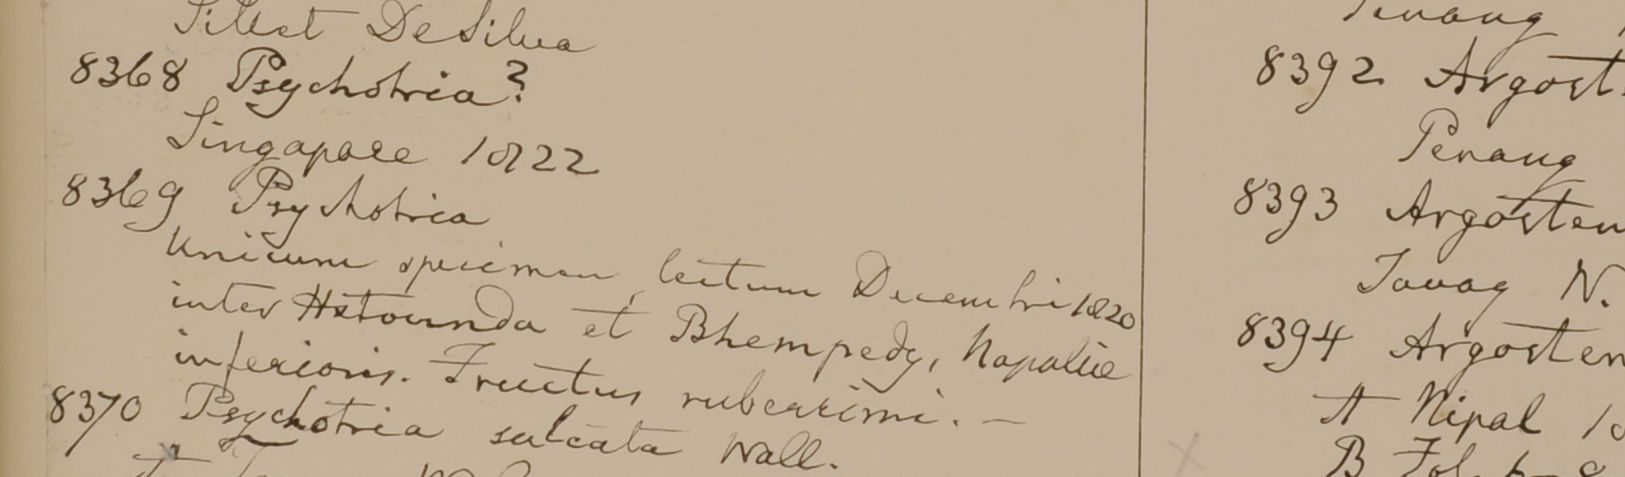 Silhet DeSilva
8368 Psychotria?
Singapore 1822
8369 Psychotria
Unicum specimen, lectum Decembri 1820
inter Hetounda et Bhempedy, Napaliae
inferioris. Fructus ruberrimi. —
8370 Psychotria sulcata Wall.
Penang
8392 Argost
Penang
8393 Argostem
Tavoy N.
8394 Argostem
A Nipal 18
B